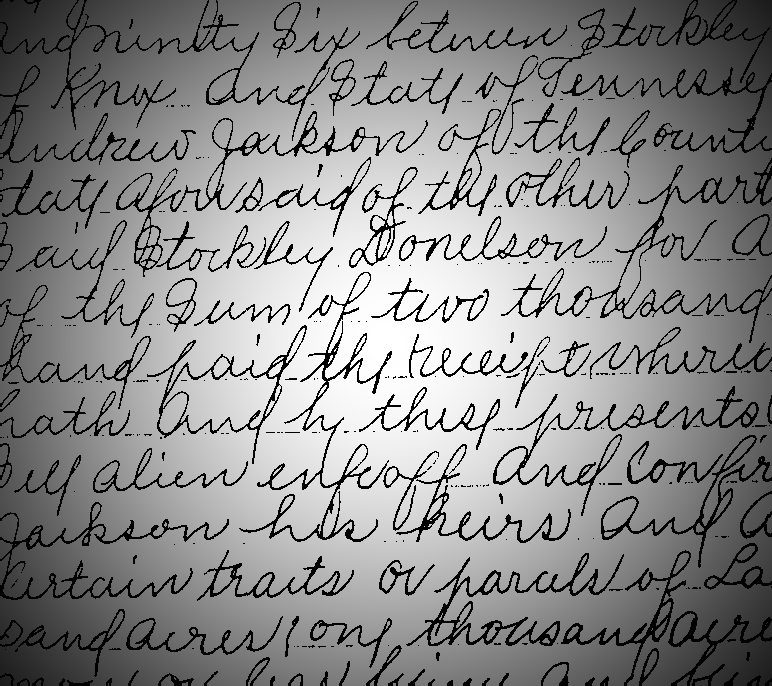 and ninlty Six between Stockley
of Knox and State of Tennessee
Andrew Jackson of the Count
State aforesaid of the other part
Said Stockley Donelson for a
of the Sum of two thousand
hand paid the receipt where
hath and by these presents
Sell alien enfeoff and Confir
Jackson his heirs and a
Certain tracts or parcels of La
sand acres, one thousand acre
more or less being and bein